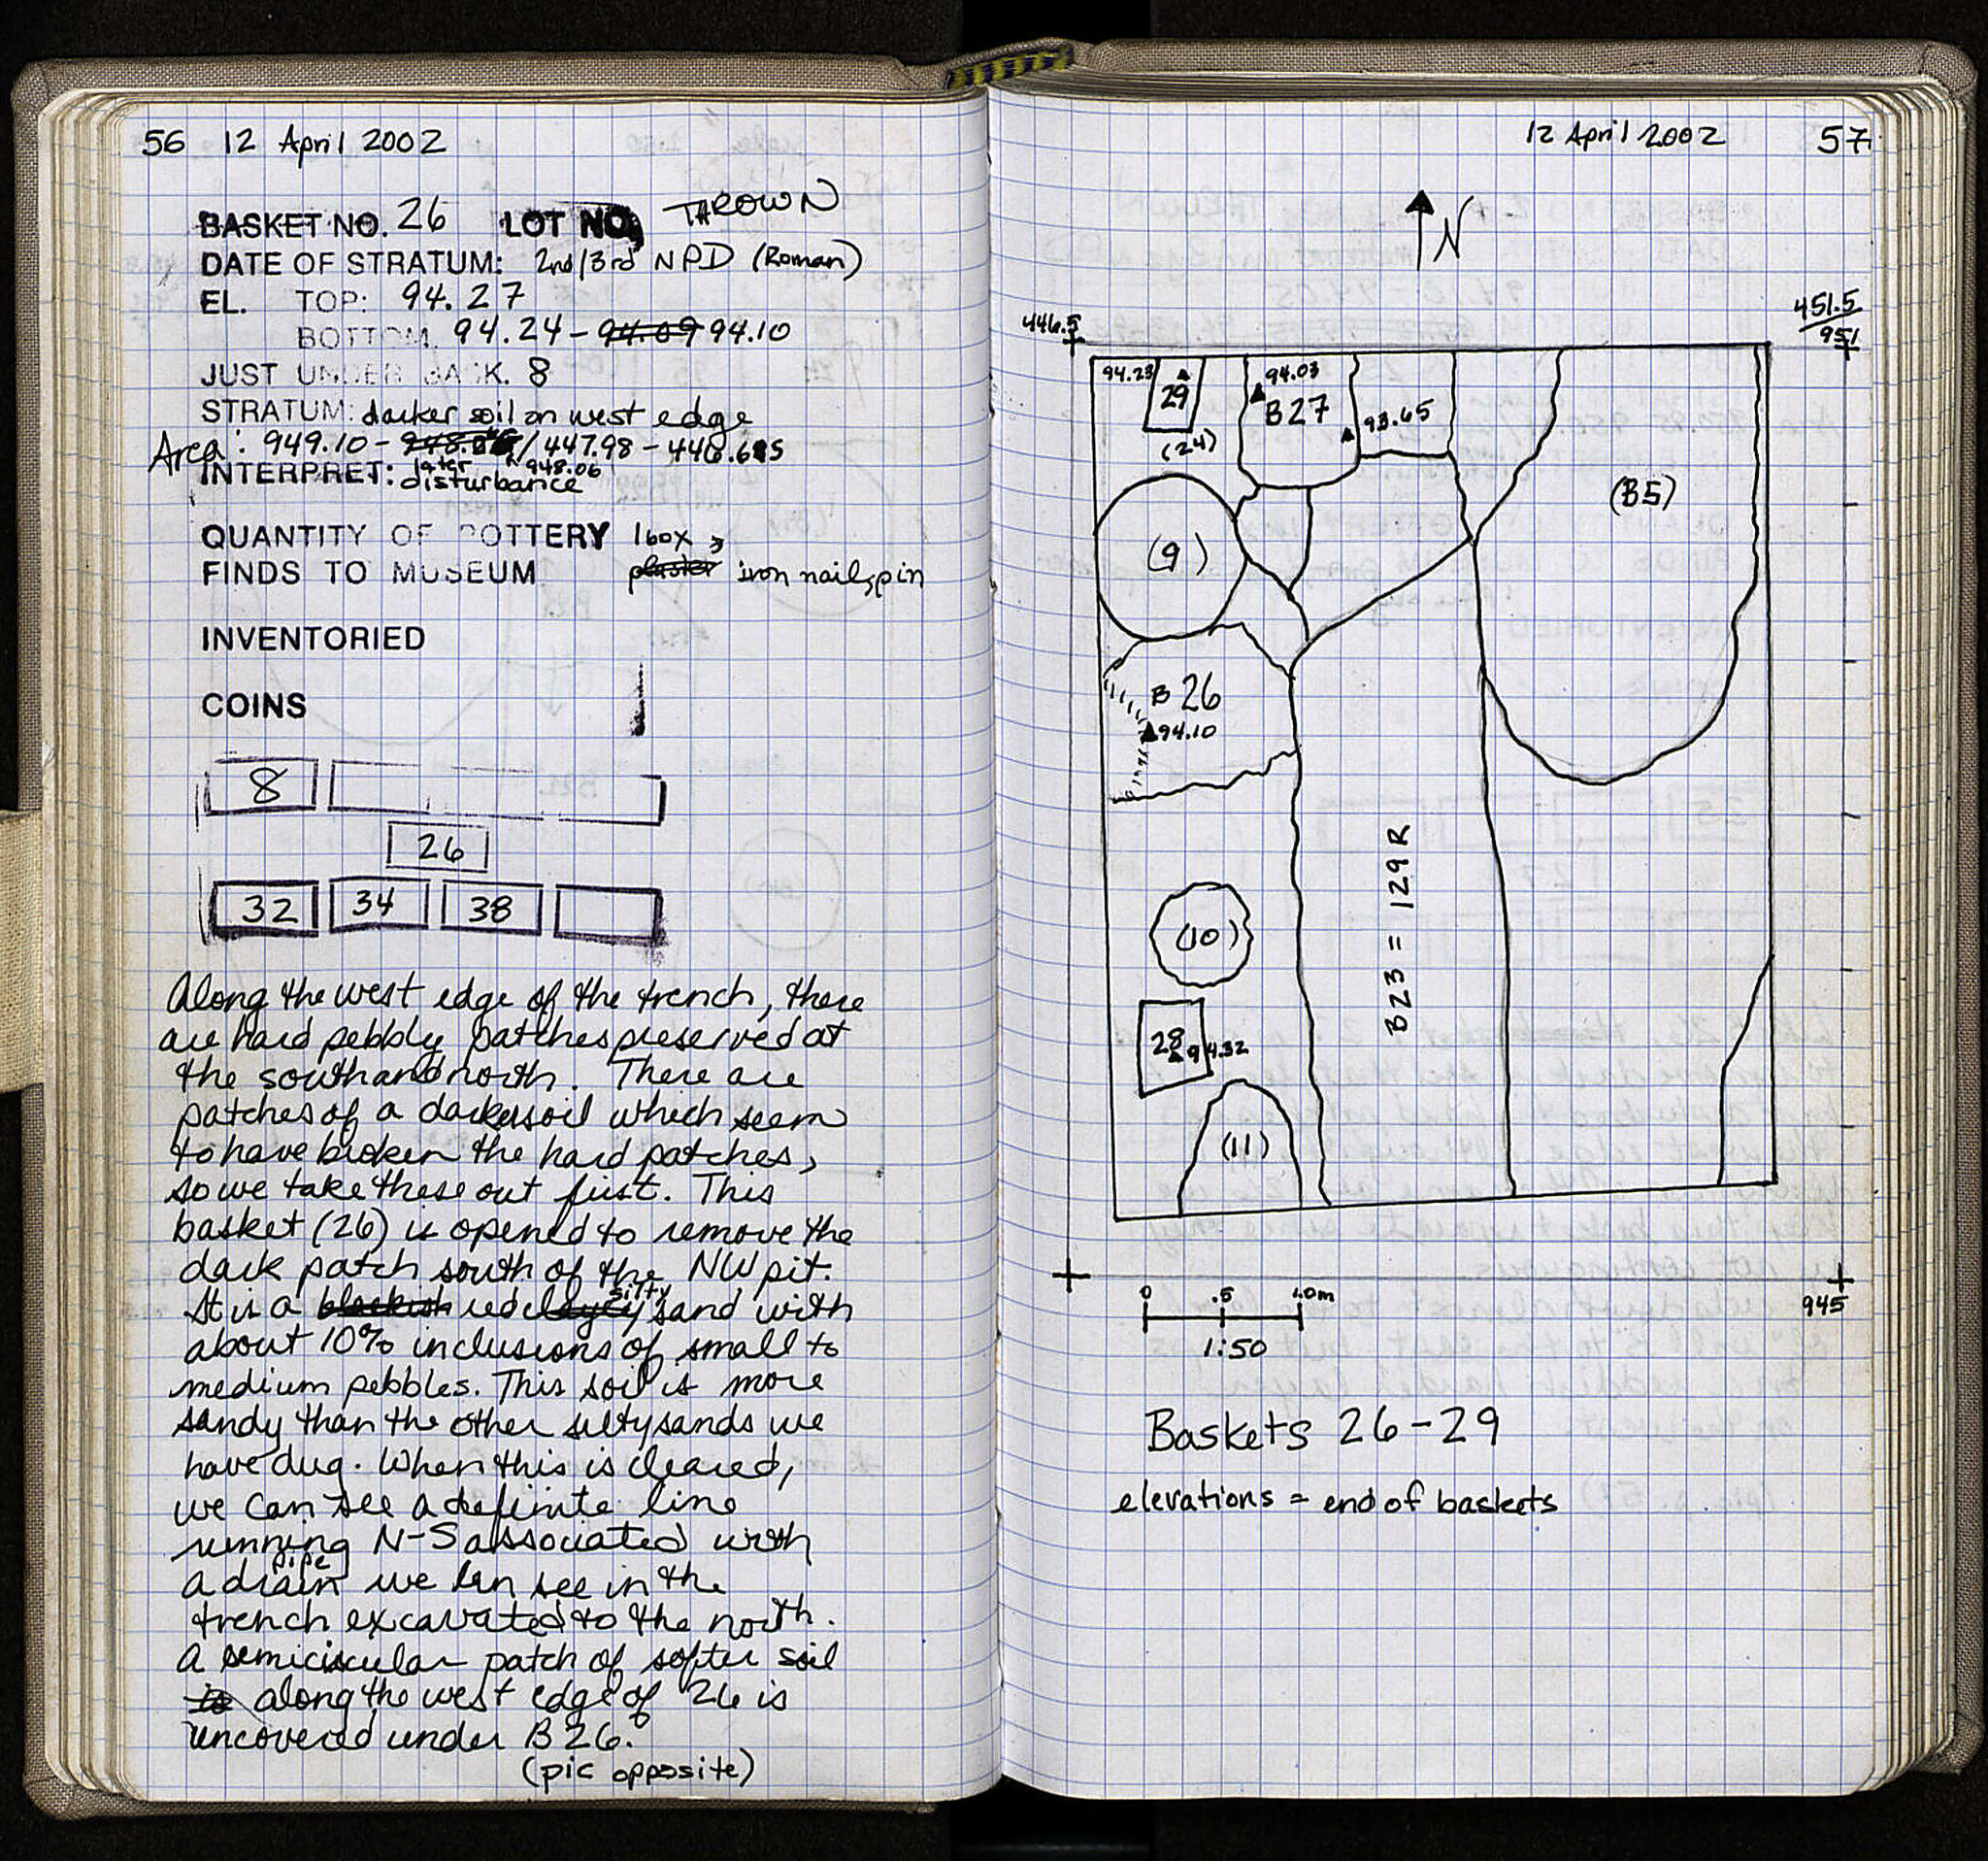 56 12 April 2002
BASKET NO. 26 LOT NO. THROWN
DATE OF STRATUM: 2nd/3rd NPD (Roman)
EL. TOP: 94.27
BOTTOM. 94.24 - 94.09 94.10
JUST UNDER BASK. 8
STRATUM: darker soil on west edge
Area: 949.10 - /447.98 - 446.685
948.06
INTERPRET: later
disturbance
QUANTITY OF POTTERY 1 box
FINDS TO MUSEUM plaster iron nail, pin
INVENTORIED
COINS
8
26
32 34 38
Along the west edge of the trench, there
are hard pebbly patches preserved at
the south and north. There are
patches of a darker soil which seem
to have broken the hard patches,
so we take these out first. This
basket (26) is opened to remove the
dark patch south of the NW pit.
It is a blackish red clayey silty sand with
about 10% inclusions of small to
medium pebbles. This soil is more
sandy than the other silty sands we
have dug. When this is cleared,
we can see a definite line
running N-S associated with
a drain pipe we can see in the
trench excavated to the north.
A semicircular patch of softer soil
is along the west edge of 26 is
uncovered under B26.
(pic opposite)
12 April 2002 57
N
446.5
451.5
951
94.23
29
(24)
94.03
B27
93.65
(B5)
(9)
B 26
94.10
B23 = 129R
(10)
28
94.32
(11)
945
0 .5 1.0m
1:50
Baskets 26-29
elevations = end of baskets